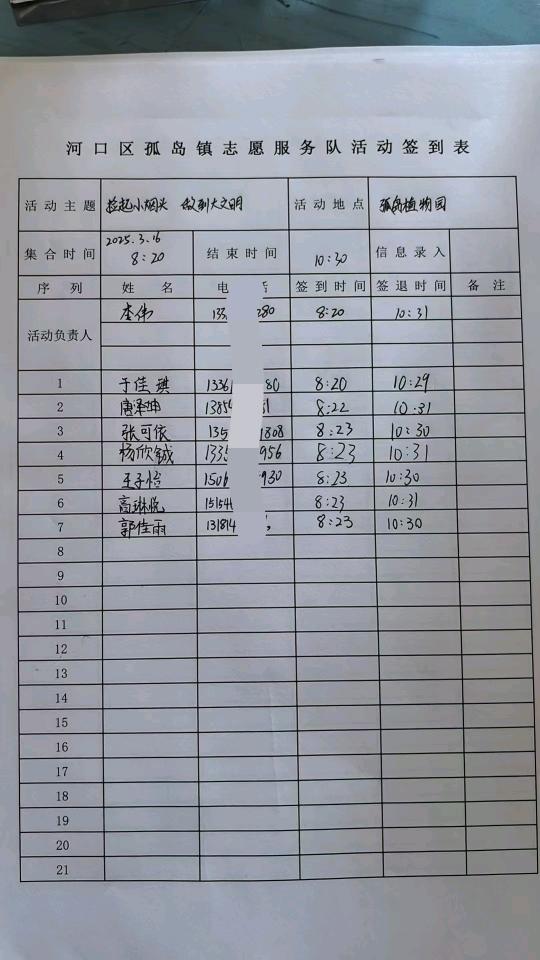 河口区孤岛镇志愿服务队活动签到表
活动主题 捡起小烟头 做到大文明 活动地点 孤岛植物园
集合时间 2025.3.16 8:20 结束时间 10:30 信息录入
序列 姓名 电 签到时间 签退时间 备注
活动负责人 李伟 133 280 8:20 10:31
1 于佳琪 1336 80 8:20 10:29
2 唐泽坤 1385 1 8:22 10:31
3 张可依 135 1808 8:23 10:30
4 杨欣铖 133 956 8:23 10:31
5 王子怡 150 930 8:23 10:30
6 高琳悦 15154 8:23 10:31
7 郭佳雨 131814 8:23 10:30
8
9
10
11
12
13
14
15
16
17
18
19
20
21